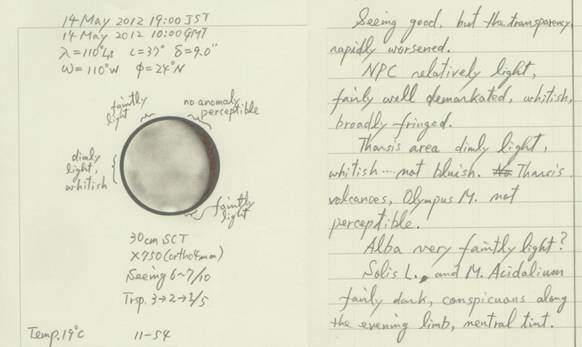 14 May 2012 19:00 JST
14 May 2012 10:00 GMT
λ=110°Ls ι=37° δ=9.0"
ω=110°W φ=24°N
faintly
light
no anomaly
perceptible
dimly
light,
whitish
faintly
light
30cm SCT
×750 (ortho4mm)
Seeing 6~7/10
Trsp. 3→2→1/5
Temp. 19°C
11-54
Seeing good, but the transparency
rapidly worsened.
NPC relatively light,
fairly well demarkated, whitish,
broadly-fringed.
Tharsis area dimly light,
whitish....not bluish. Tharsis
volcanoes, Olympus M. not
perceptible.
Alba very faintly light?
Solis L., and M. Acidalium
fairly dark, conspicuous along
the evening limb, neutral tint.